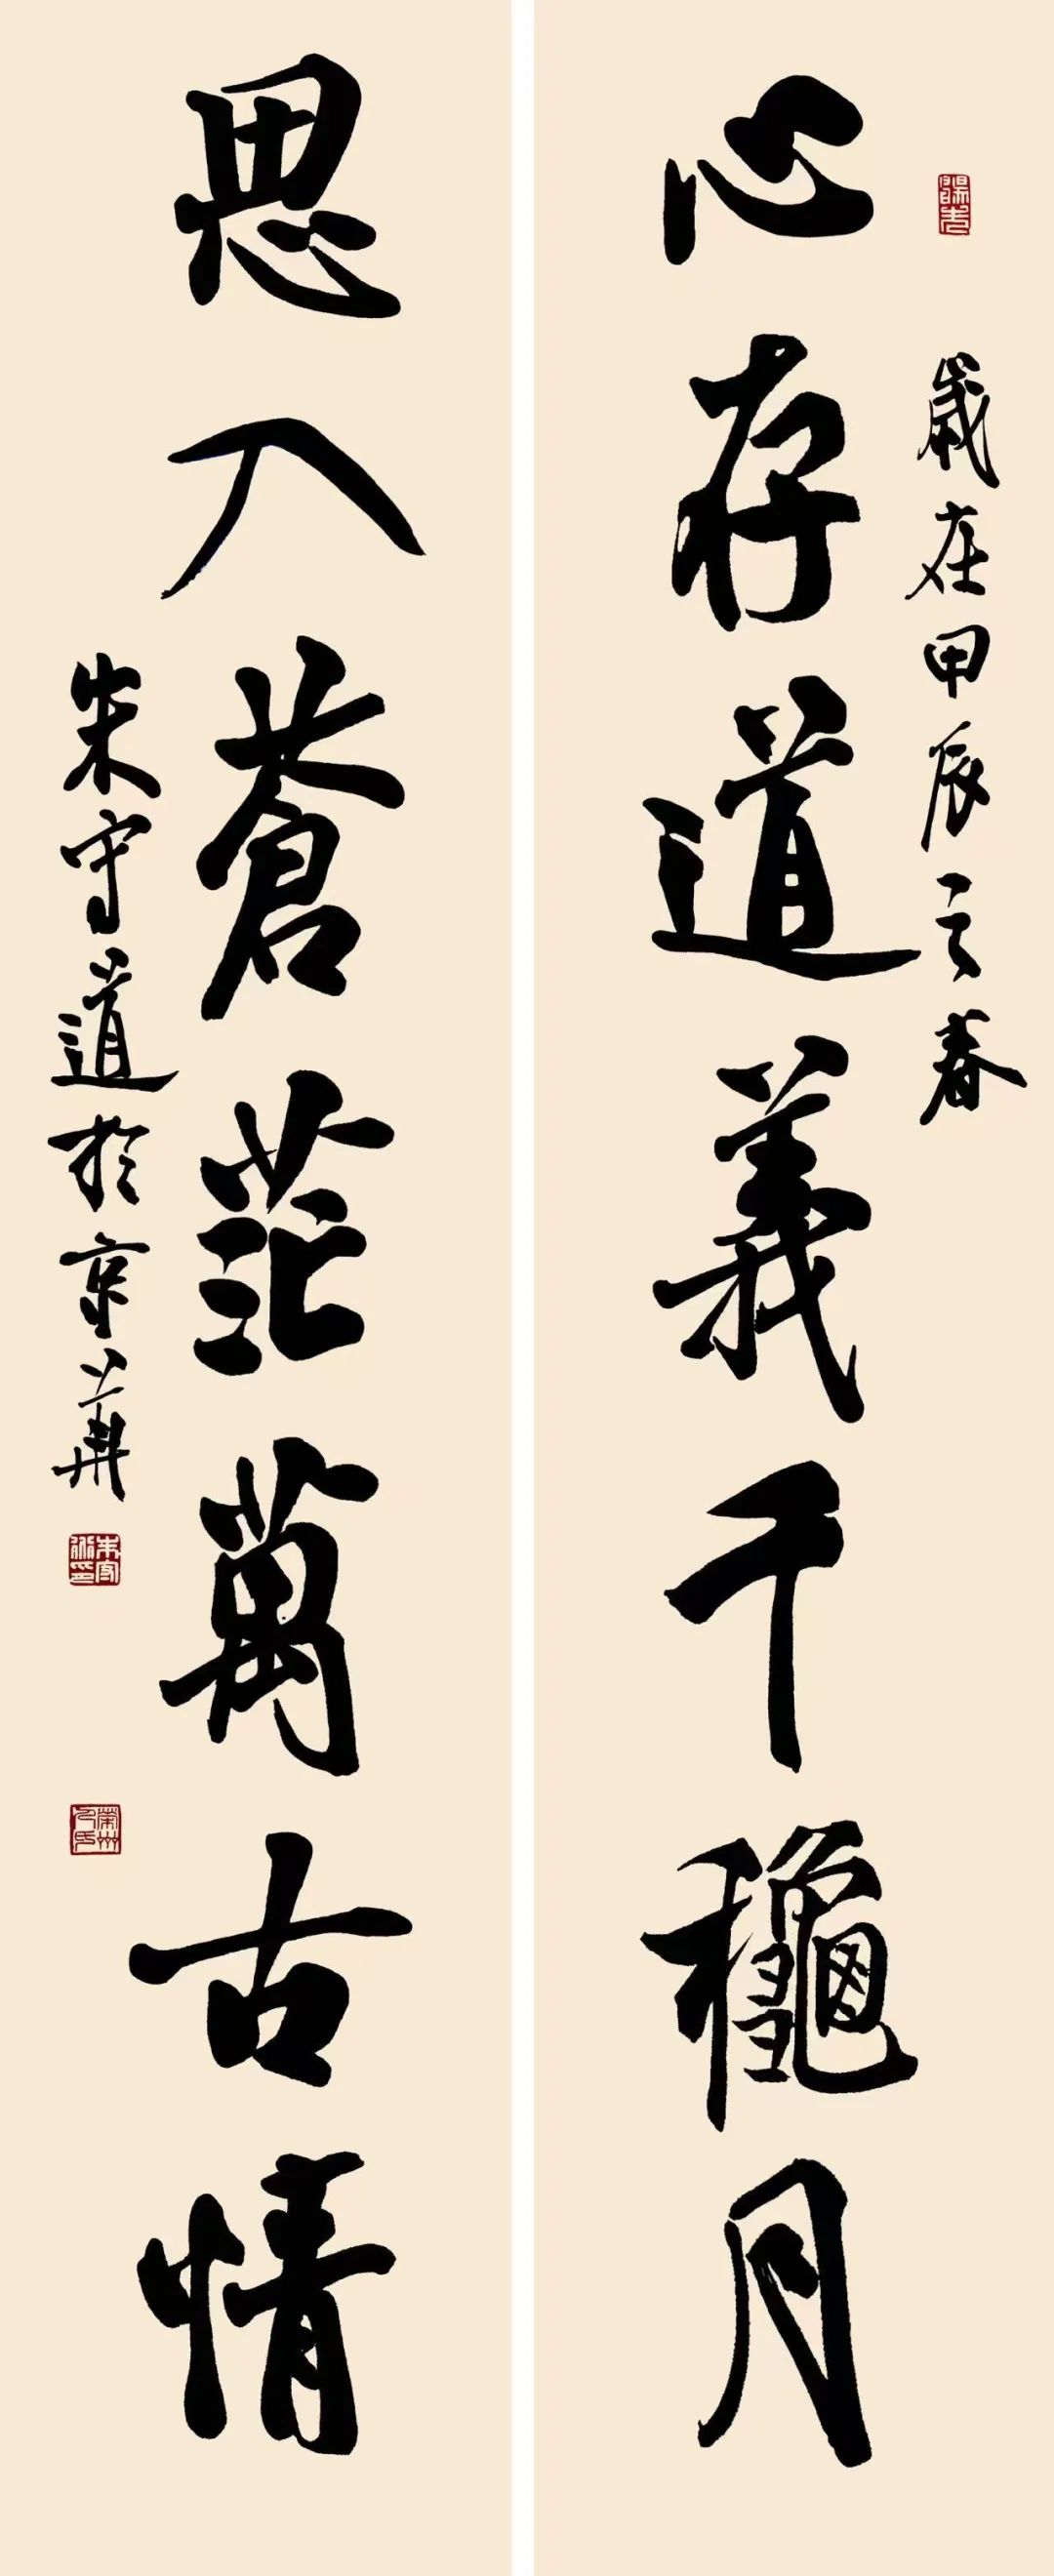 歲在甲辰之春
心存道義千龝月
思入蒼茫萬古情
朱守道於京華